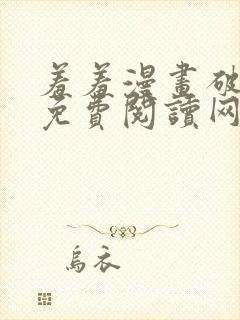 羞羞漫畫破
免費閱讀网
烏衣